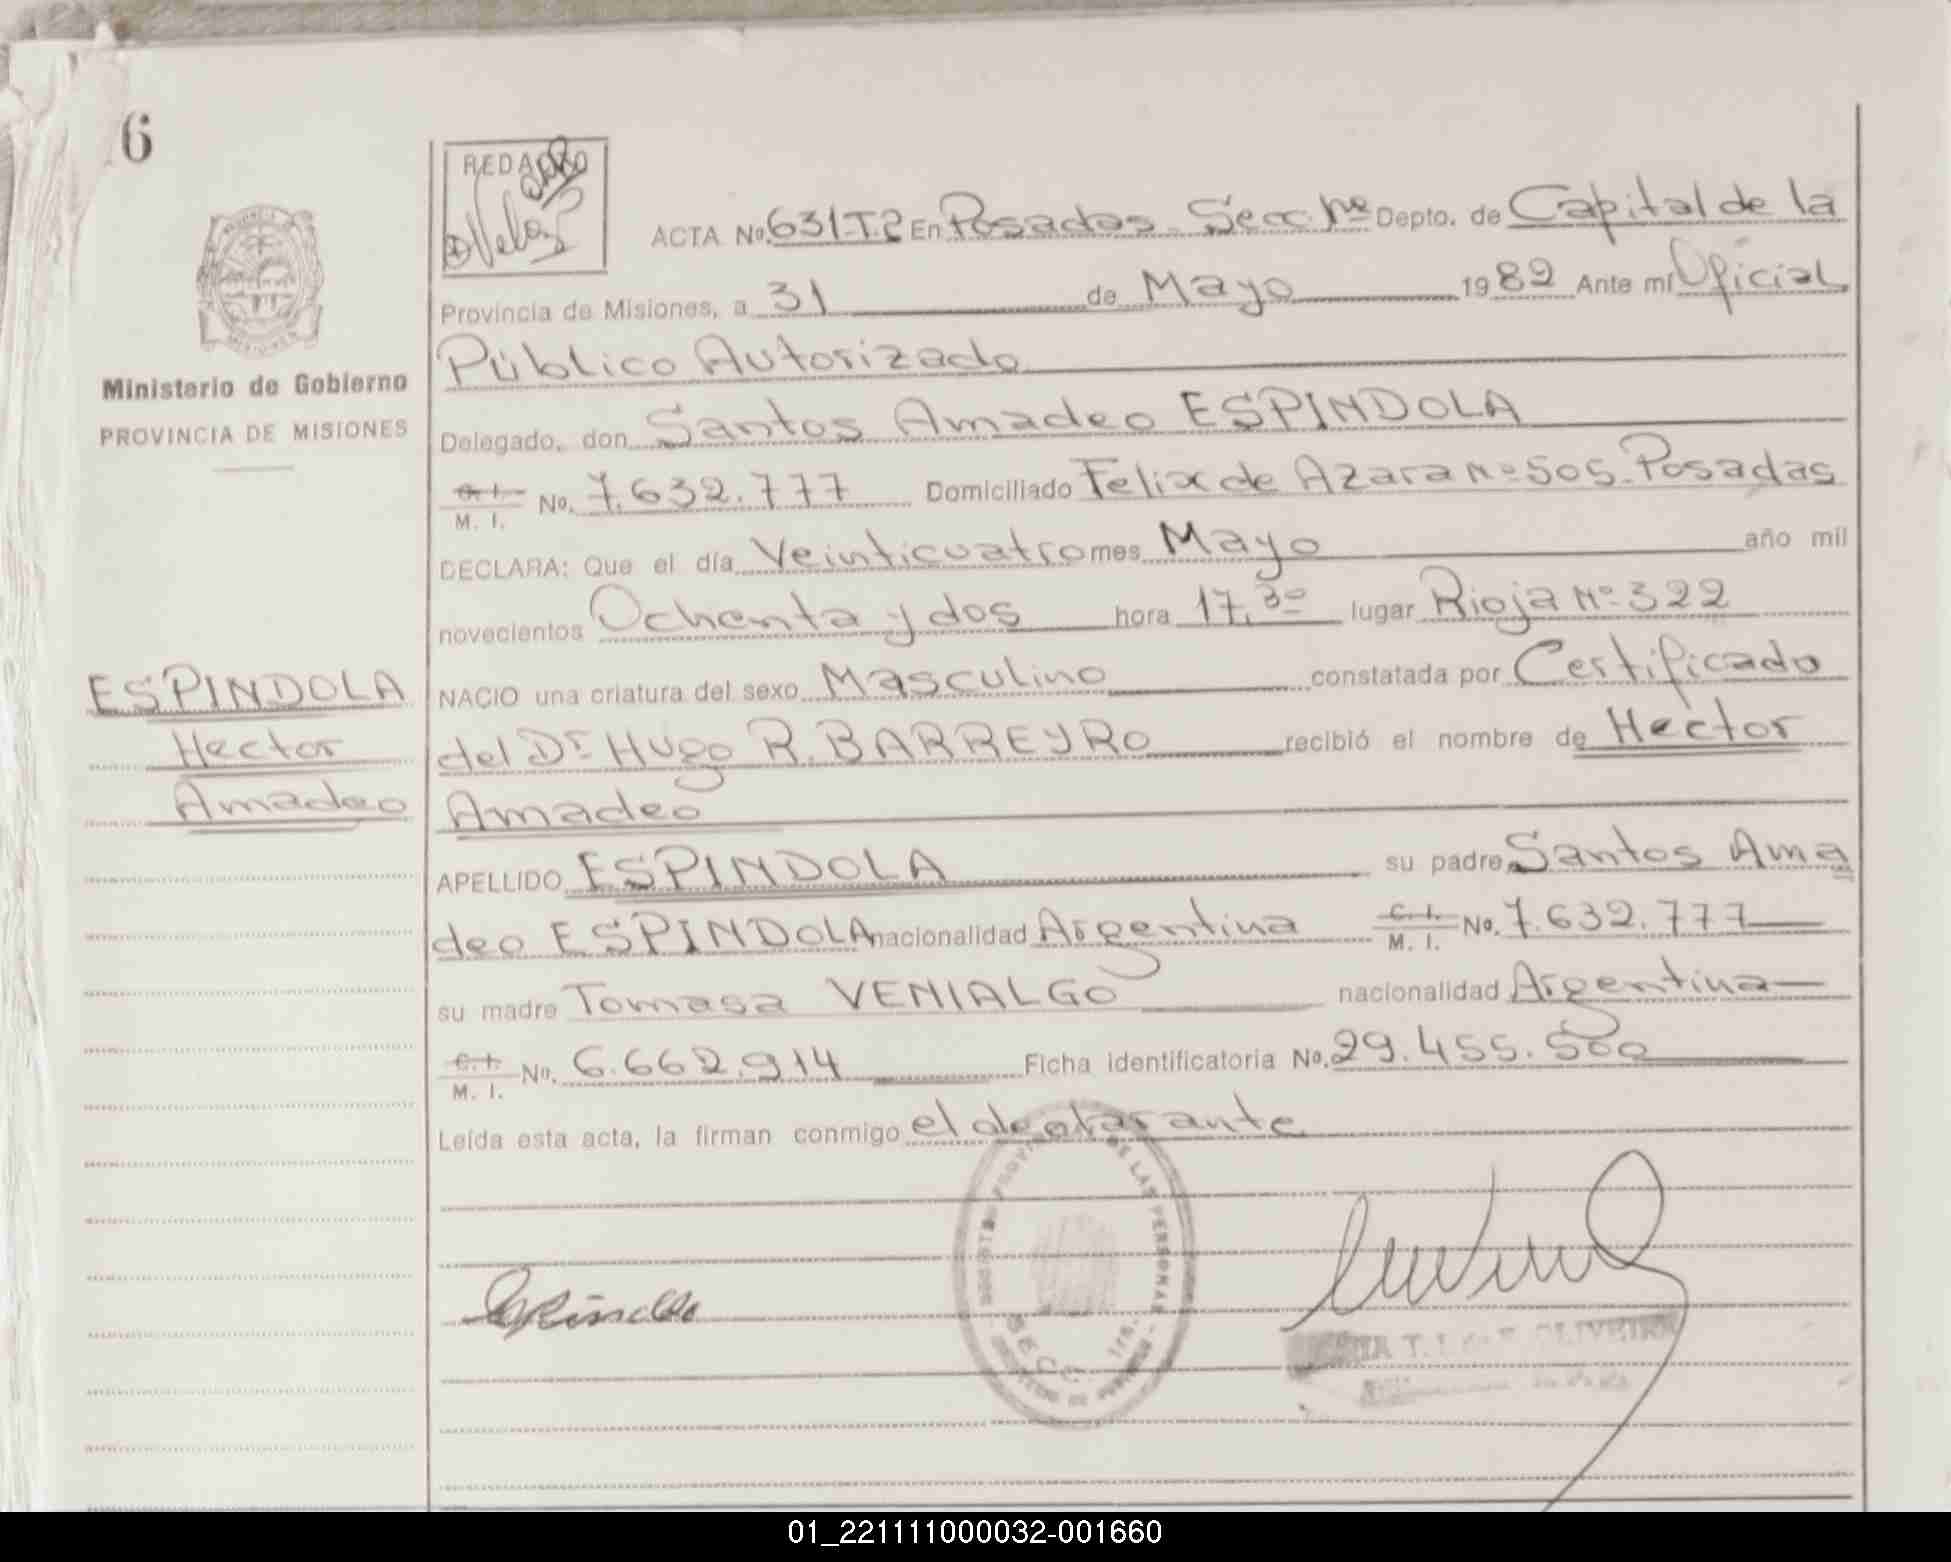 6
REDACTO
Veloz
ACTA No. 631-T.2 En Posadas - Secc. 1ra Depto. de Capital de la
Provincia de Misiones, a 31 de Mayo 1982 Ante mí Oficial
Público Autorizado
Ministerio de Gobierno
PROVINCIA DE MISIONES
Delegado, don Santos Amadeo ESPINDOLA
C. I. M. I. No. 7.632.777 Domiciliado Felix de Azara Nº 505 - Posadas
DECLARA: Que el día Veinticuatro mes Mayo año mil
novecientos Ochenta y dos hora 17,30 lugar Rioja Nº 322
ESPINDOLA
Hector
Amadeo
NACIO una criatura del sexo Masculino constatada por Certificado
del Dr Hugo R. BARREYRO recibió el nombre de Hector
Amadeo
APELLIDO ESPINDOLA su padre Santos Ama
deo ESPINDOLA nacionalidad Argentina C. I. M. I. No. 7.632.777
su madre Tomasa VENIALGO nacionalidad Argentina
C. I. M. I. No. 6.662.914 Ficha identificatoria No. 29.455.500
Leída esta acta, la firman conmigo el declarante
DE LAS PERSONAS
SECC. 1ra.
Espindola
OLIVEIRA
01_221111000032-001660